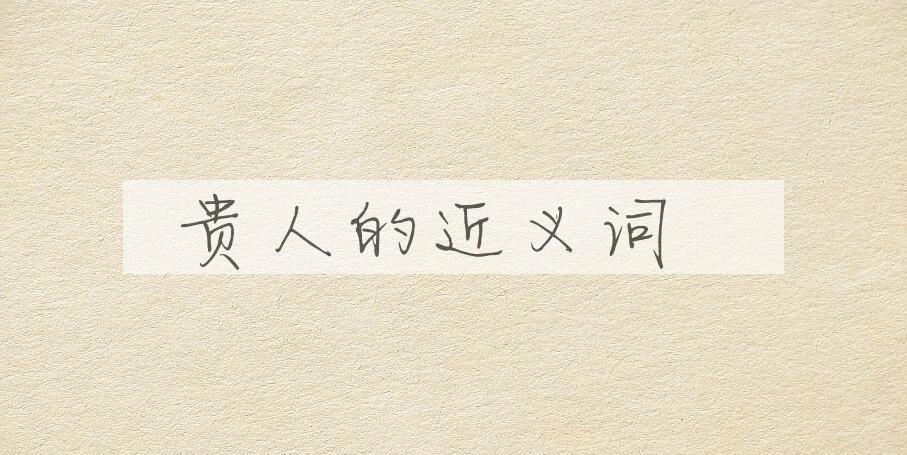 贵人的近义词